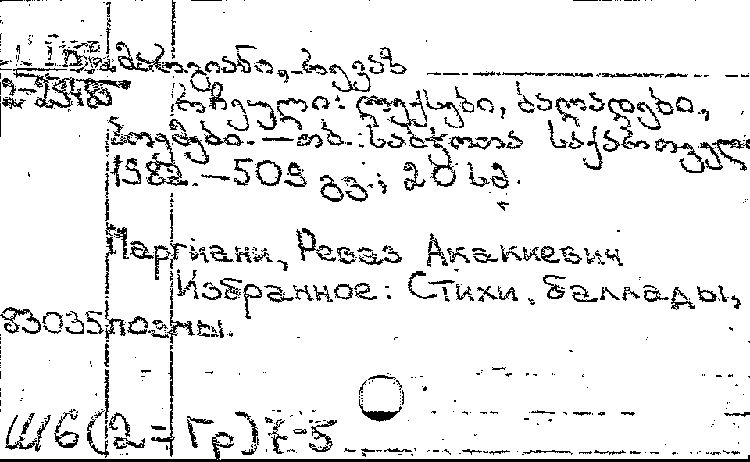 მარგიანი, რევაზ
2-2948
რჩეული: ლექსები, ბალადები,
პოემები. — თბ.: საბჭოთა საქართველო
1982. — 509 გვ.; 20 სმ.
Маргиани, Реваз Акакиевич
Избранное: Стихи, баллады,
83035 поэмы.
Ш6(2=Гр)7-5